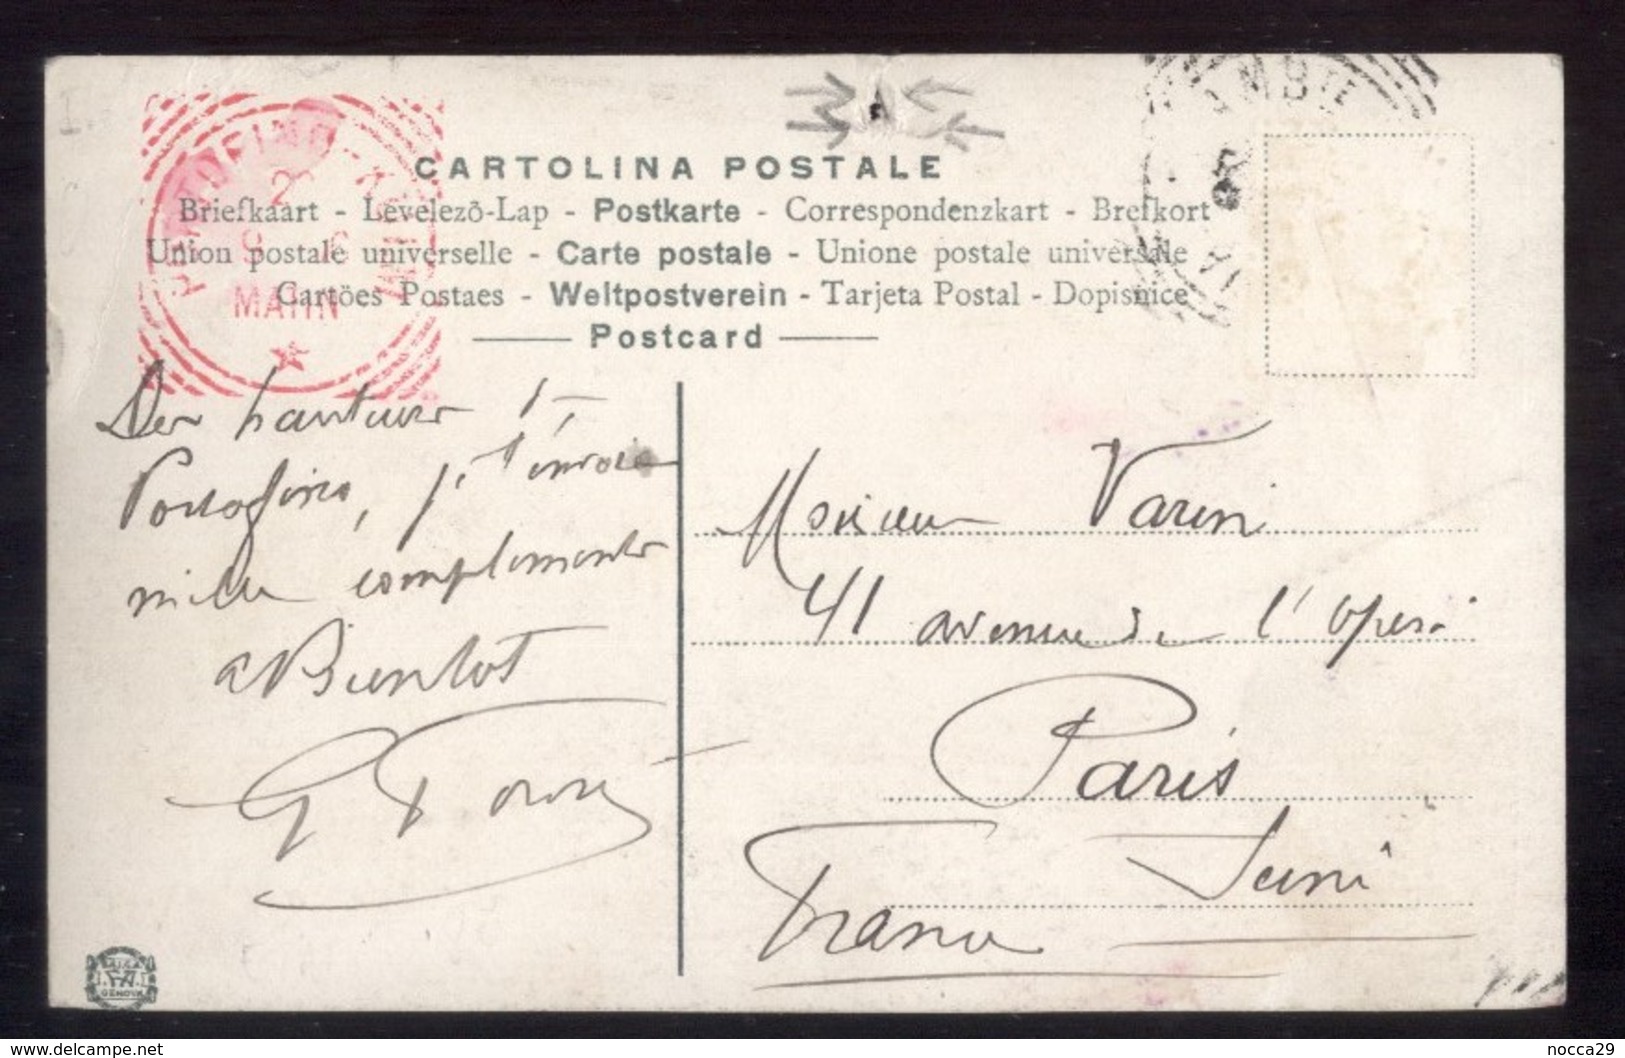 CARTOLINA POSTALE
Briefkaart - Levelezõ-Lap - Postkarte - Correspondenzkart - Brefkort
Union postale universelle - Carte postale - Unione postale universale
Cartões Postaes - Weltpostverein - Tarjeta Postal - Dopisnice
Postcard
PORTOFINO-KULM
MATIN
Des hauteurs d
Portofino, je t'envoie
mille compliments
a Bientot
G
Monsieur Varin
41 avenue de l'opera
Paris
France
GENOVA
nocca29
www.delcampe.net